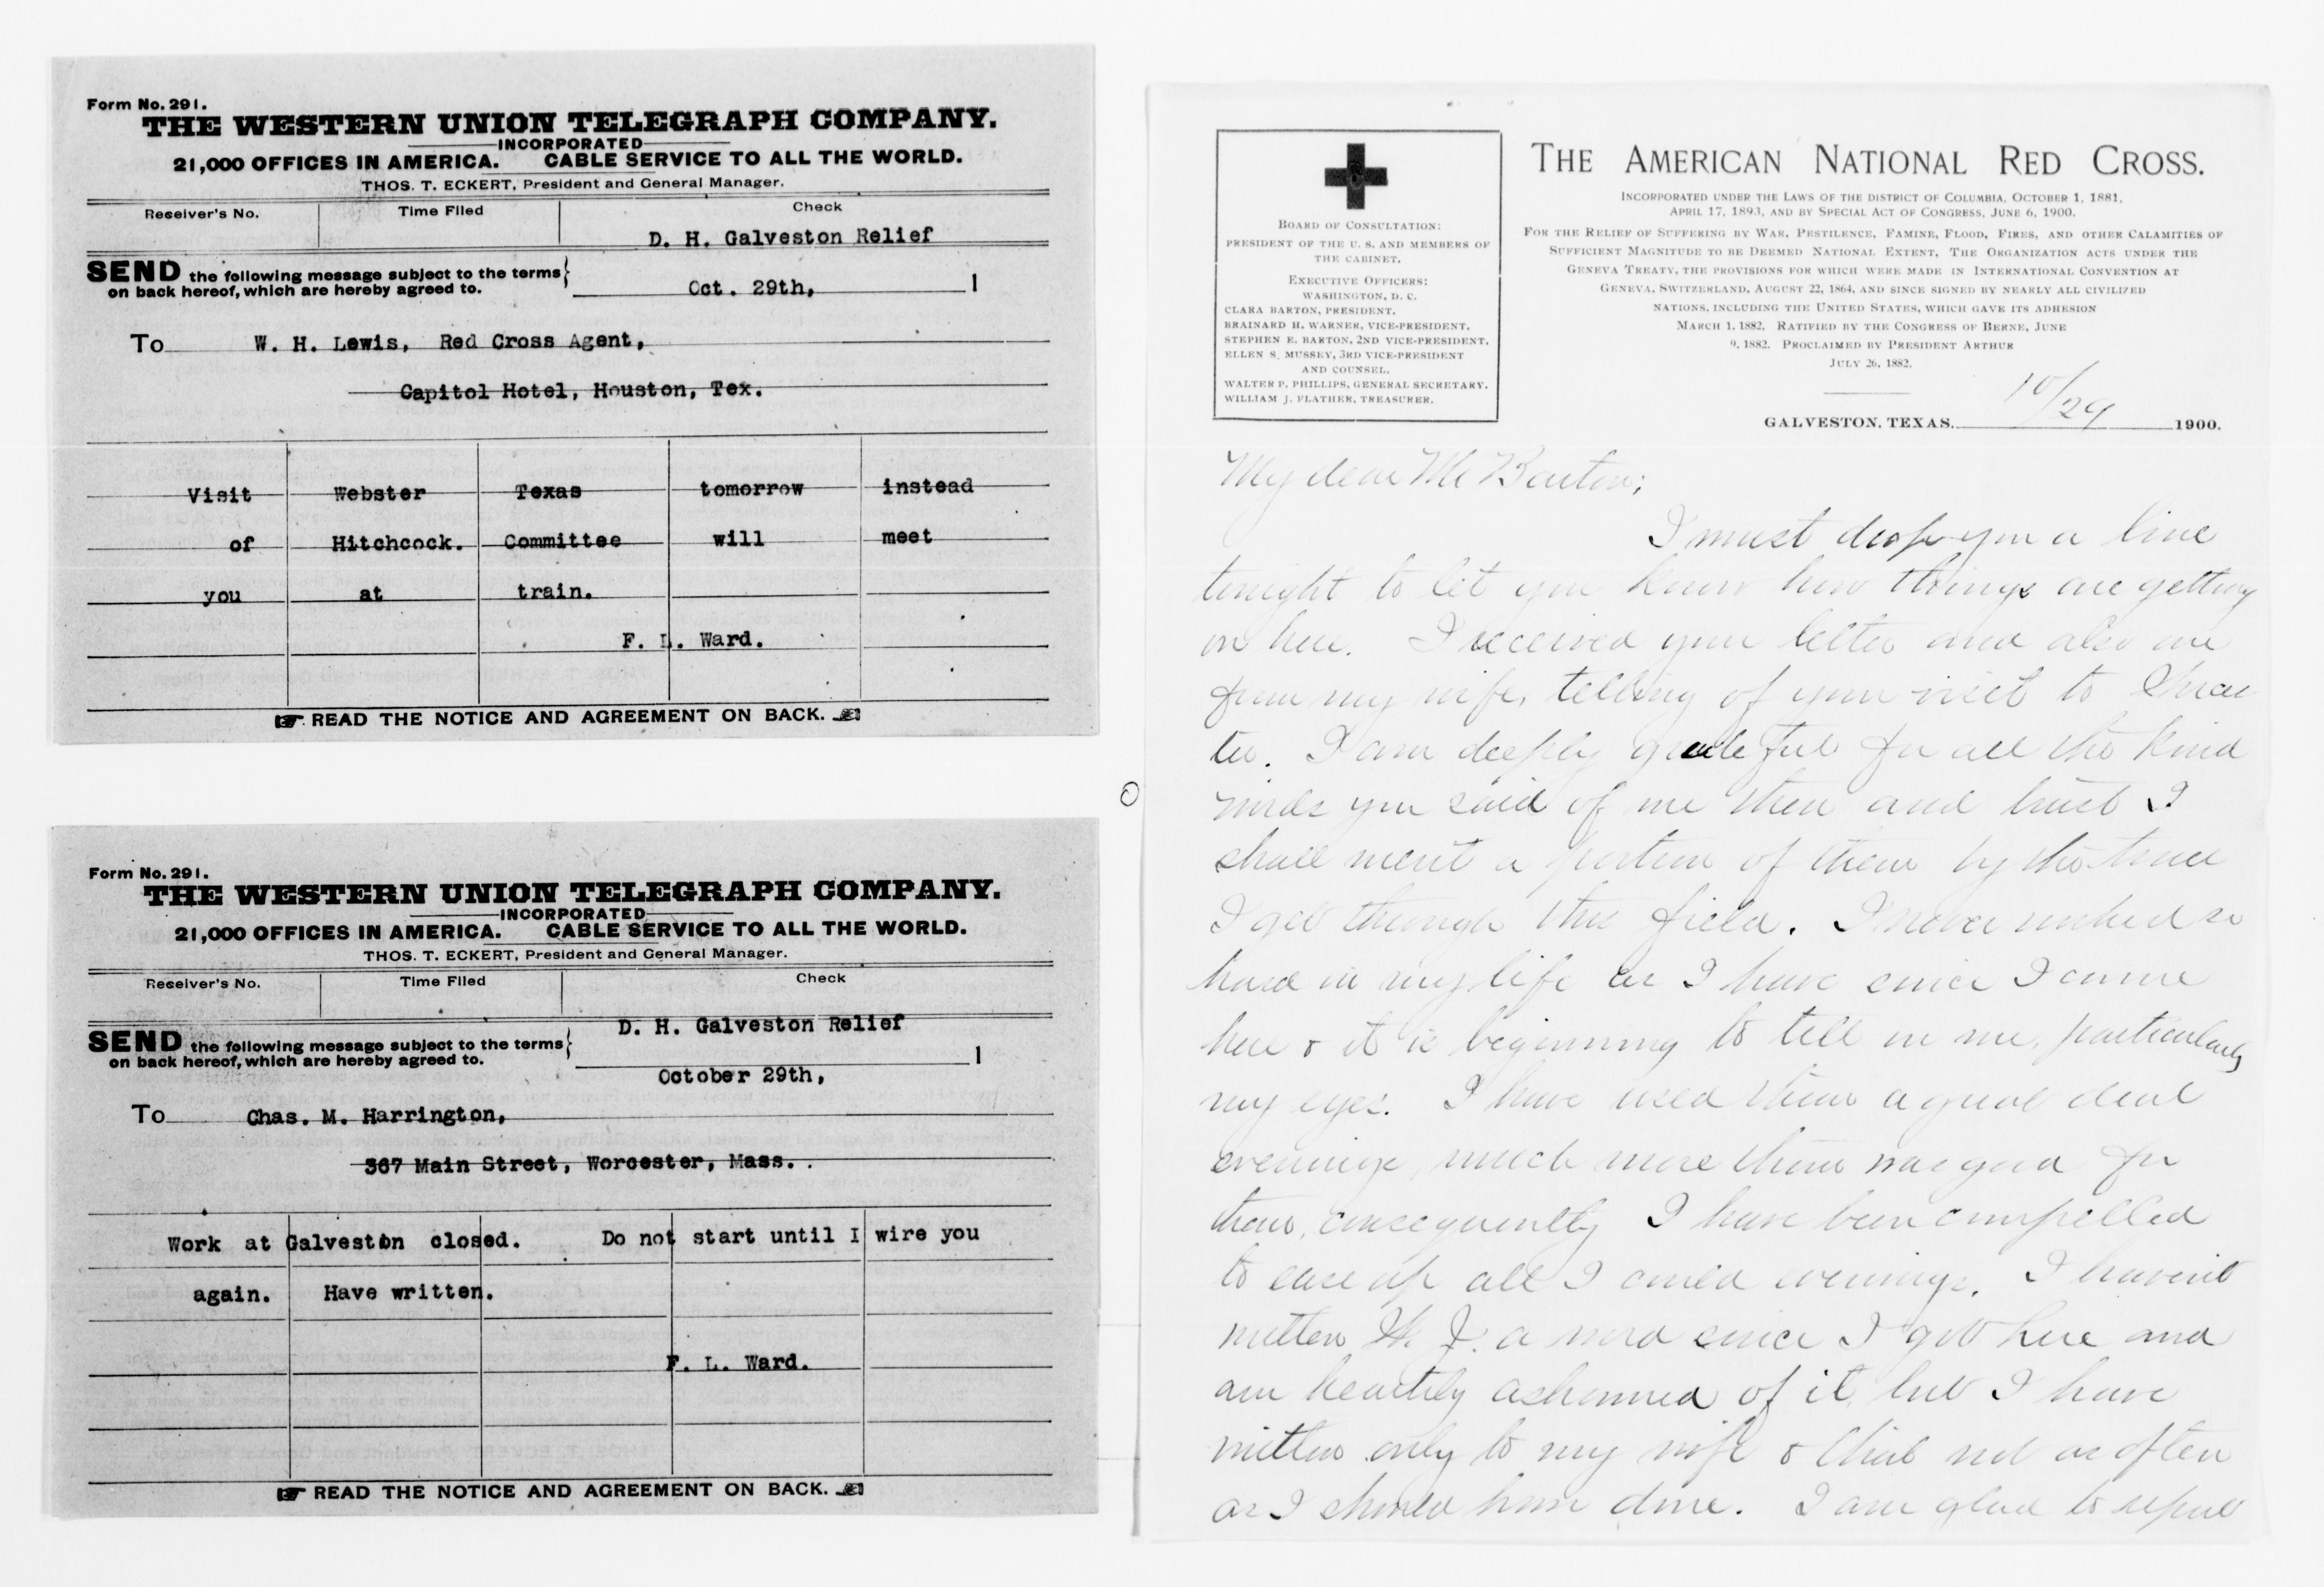 Form No. 291.
THE WESTERN UNION TELEGRAPH COMPANY.
INCORPORATED
21,000 OFFICES IN AMERICA. CABLE SERVICE TO ALL THE WORLD.
THOS. T. ECKERT, President and General Manager.
Receiver's No. Time Filed Check
D. H. Galveston Relief
SEND the following message subject to the terms
on back hereof, which are hereby agreed to.
Oct. 29th, 1
To W. H. Lewis, Red Cross Agent,
Capitol Hotel, Houston, Tex.
Visit Webster Texas tomorrow instead
of Hitchcock. Committee will meet
you at train.
F. L. Ward.
READ THE NOTICE AND AGREEMENT ON BACK.
Form No. 291.
THE WESTERN UNION TELEGRAPH COMPANY.
INCORPORATED
21,000 OFFICES IN AMERICA. CABLE SERVICE TO ALL THE WORLD.
THOS. T. ECKERT, President and General Manager.
Receiver's No. Time Filed Check
D. H. Galveston Relief
SEND the following message subject to the terms
on back hereof, which are hereby agreed to.
1
October 29th,
To Chas. M. Harrington,
367 Main Street, Worcester, Mass. .
Work at Galveston closed. Do not start until I wire you
again. Have written.
F. L. Ward.
READ THE NOTICE AND AGREEMENT ON BACK.
BOARD OF CONSULTATION:
PRESIDENT OF THE U. S. AND MEMBERS OF
THE CABINET.
EXECUTIVE OFFICERS:
WASHINGTON, D. C.
CLARA BARTON, PRESIDENT.
BRAINARD H. WARNER, VICE-PRESIDENT.
STEPHEN E. BARTON, 2ND VICE-PRESIDENT.
ELLEN S. MUSSEY, 3RD VICE-PRESIDENT
AND COUNSEL.
WALTER P. PHILLIPS, GENERAL SECRETARY.
WILLIAM J. FLATHER, TREASURER.
THE AMERICAN NATIONAL RED CROSS.
INCORPORATED UNDER THE LAWS OF THE DISTRICT OF COLUMBIA, OCTOBER 1, 1881,
APRIL 17, 1893, AND BY SPECIAL ACT OF CONGRESS, JUNE 6, 1900.
FOR THE RELIEF OF SUFFERING BY WAR, PESTILENCE, FAMINE, FLOOD, FIRES, AND OTHER CALAMITIES OF
SUFFICIENT MAGNITUDE TO BE DEEMED NATIONAL EXTENT, THE ORGANIZATION ACTS UNDER THE
GENEVA TREATY, THE PROVISIONS FOR WHICH WERE MADE IN INTERNATIONAL CONVENTION AT
GENEVA, SWITZERLAND, AUGUST 22, 1864, AND SINCE SIGNED BY NEARLY ALL CIVILIZED
NATIONS, INCLUDING THE UNITED STATES, WHICH GAVE ITS ADHESION
MARCH 1, 1882. RATIFIED BY THE CONGRESS OF BERNE, JUNE
9, 1882. PROCLAIMED BY PRESIDENT ARTHUR
JULY 26, 1882.
GALVESTON, TEXAS. 10/29 1900.
My dear Mr Barton;
I must drop you a line
tonight to let you know how things are getting
on here. I received your letter and also one
from my wife, telling of your visit to
I am deeply grateful for all the kind
words you said of me there and trust I
shall merit a portion of them by the time
I get through this field. I never worked so
hard in my life as I have since I came
here & it is beginning to tell on me, particularly
my eyes. I have used them a good deal
evenings, much more than was good for
them, consequently I have been compelled
to ease up all I could evenings. I haven't
written a word since I got here and
am heartily ashamed of it, but I have
written only to my wife & that not as often
as I should have done. I am glad to report